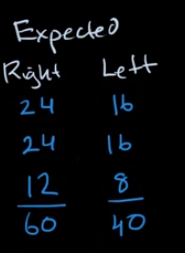 Expected
Right Left
24 16
24 16
12 8
60 40